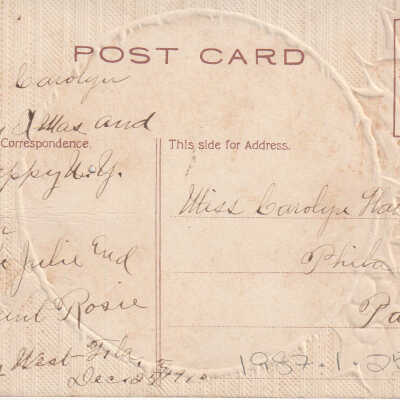 POST CARD
Carolyn
Xmas and
Correspondence.
ppy N.Y.
Julie End
Rosie
West
Dec. 25
This side for Address.
Miss Carolyn
Phila
Pa
1987.1.25